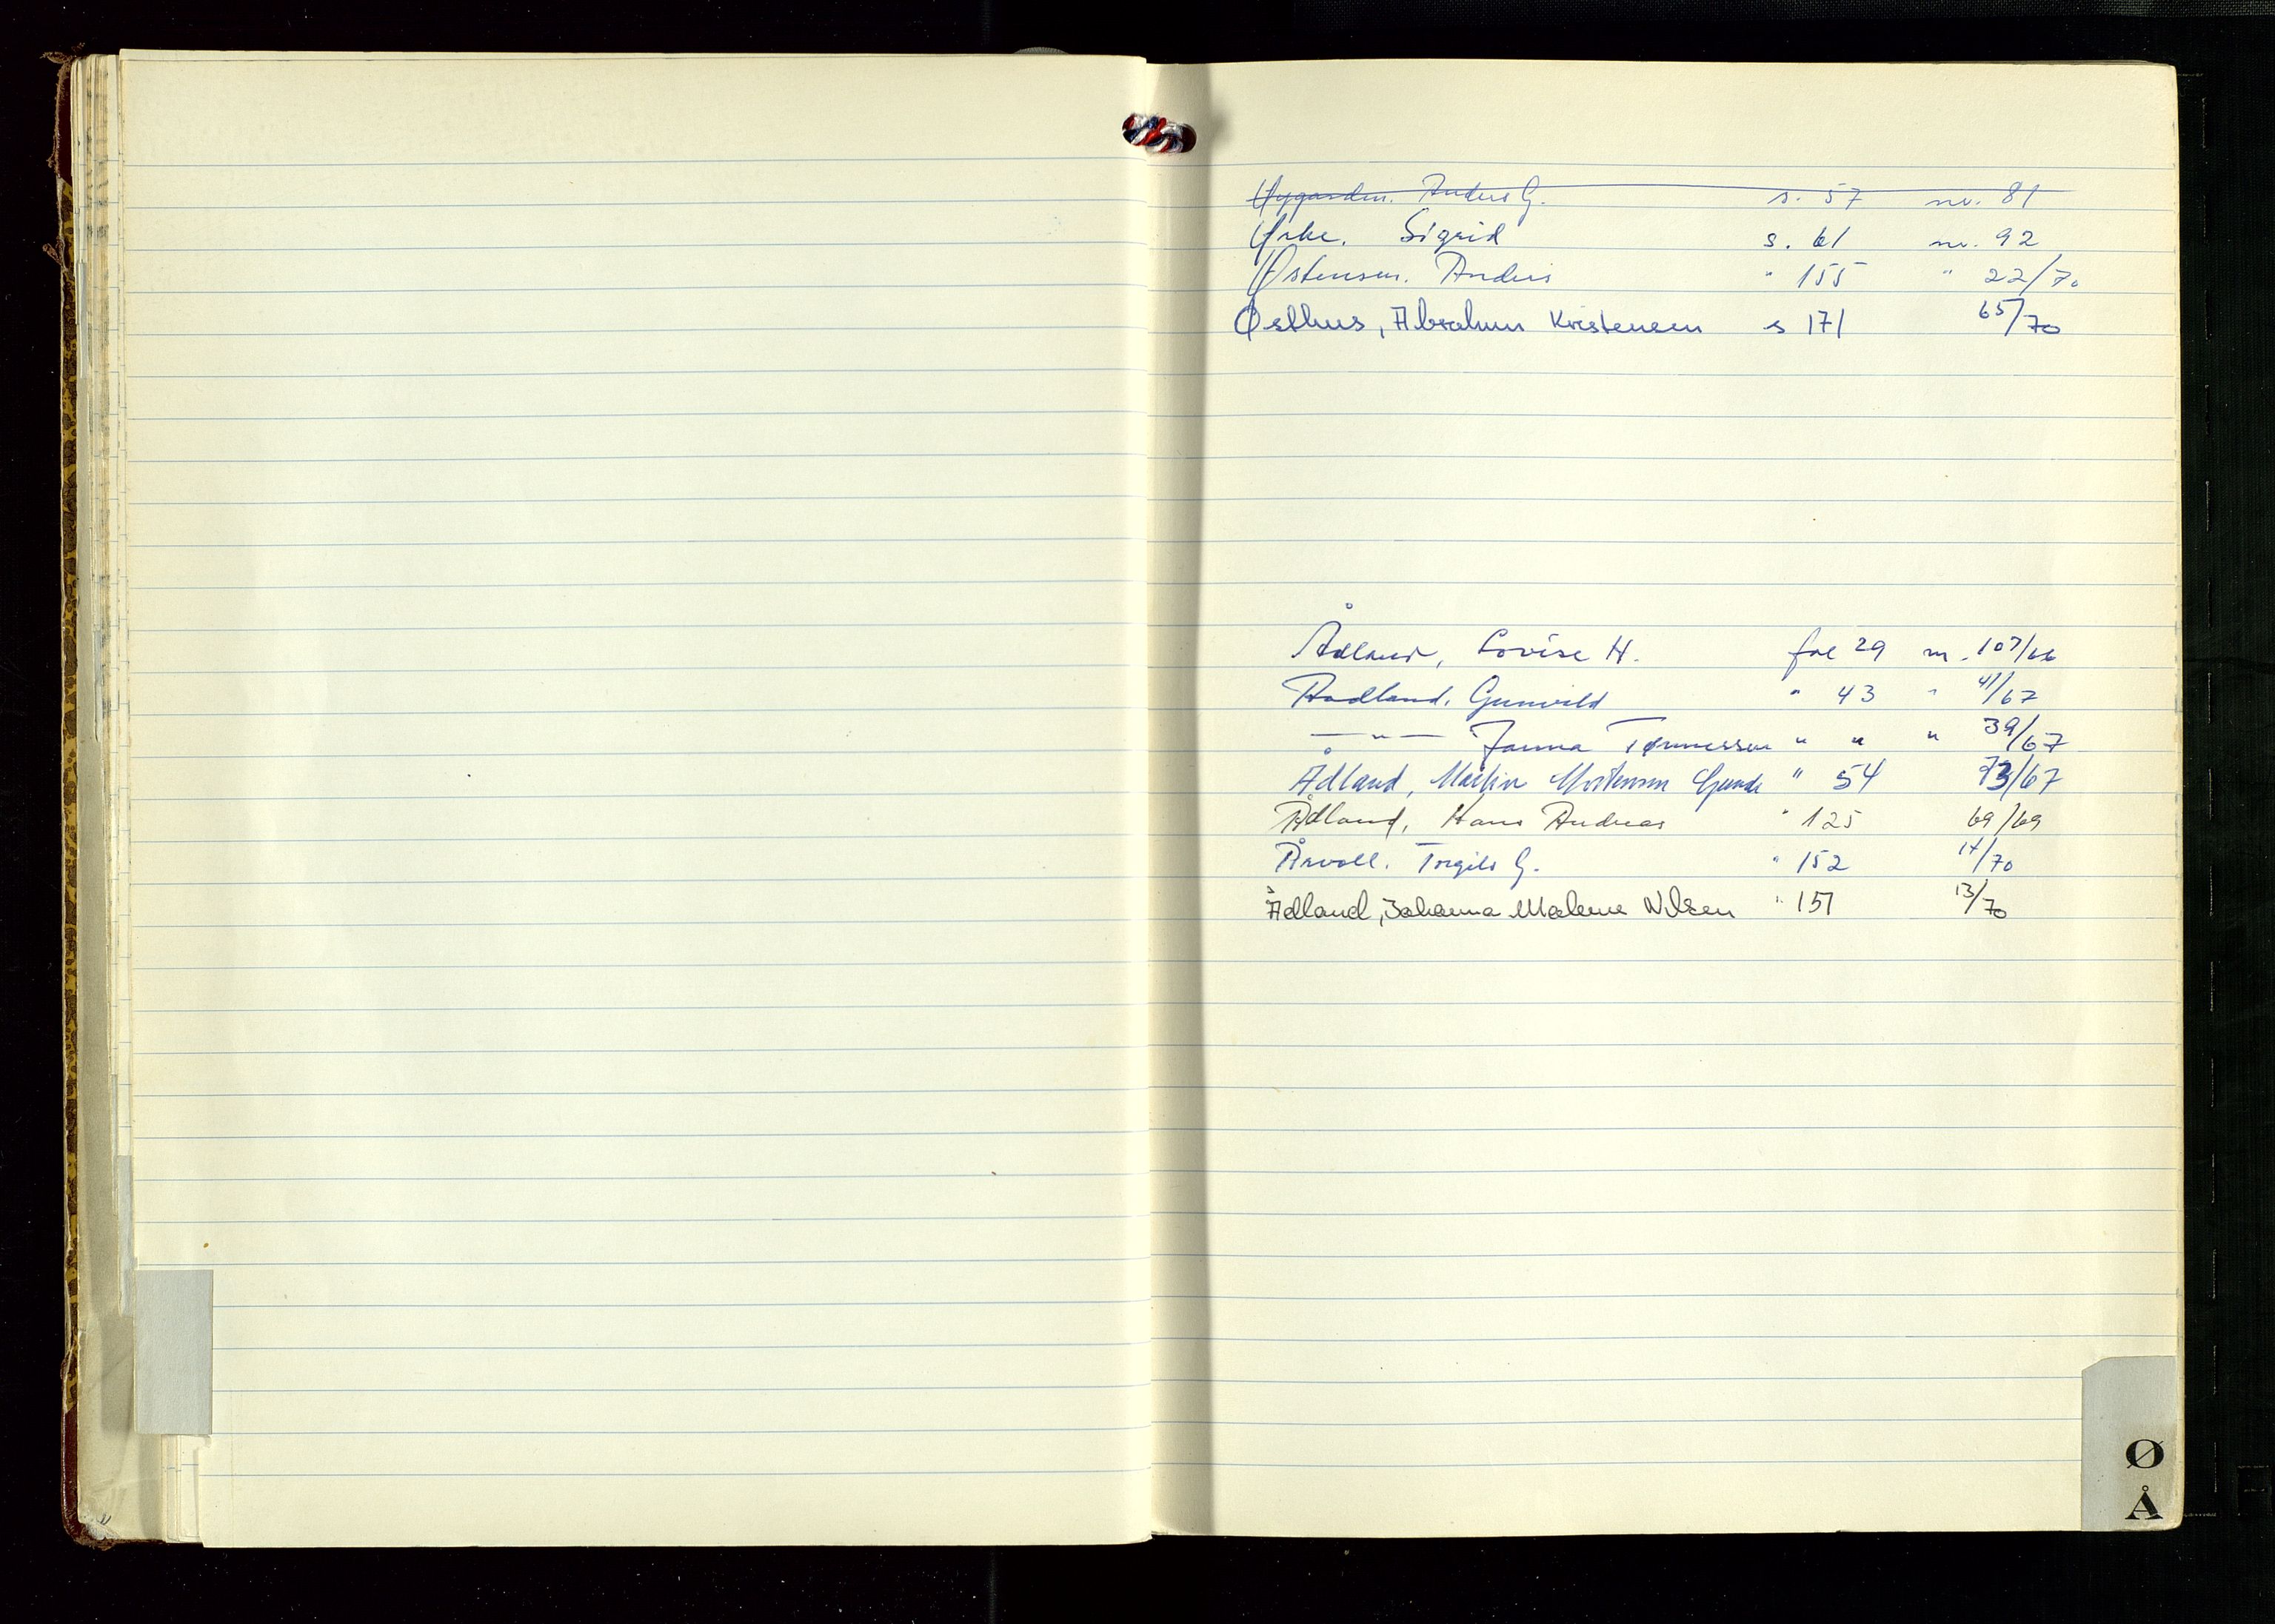 Øygarden. Anders G. s. 57 nr. 81
Ørke. Sigrid s. 61 nr. 92
Østensen. Anders " 155 " 22/70
Østhus, Abraham Kristensen s 171 65/70
Ådland, Lovise H. fol 29 nr. 107/66
Aadland. Gunvald " 43 " 41/67
— " — Janna Tønnessen " " " 39/67
Ådland, Martin Mortensen " 54 73/67
Ådland, Hans Andreas " 125 69/69
Årvoll. Torgils G. " 152 17/70
Ådland, Johanna Malene Nilsen " 151 13/70
Ø
Å